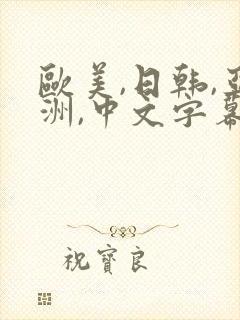 歐美,日韩,亚
洲,中文字幕
祝寳良